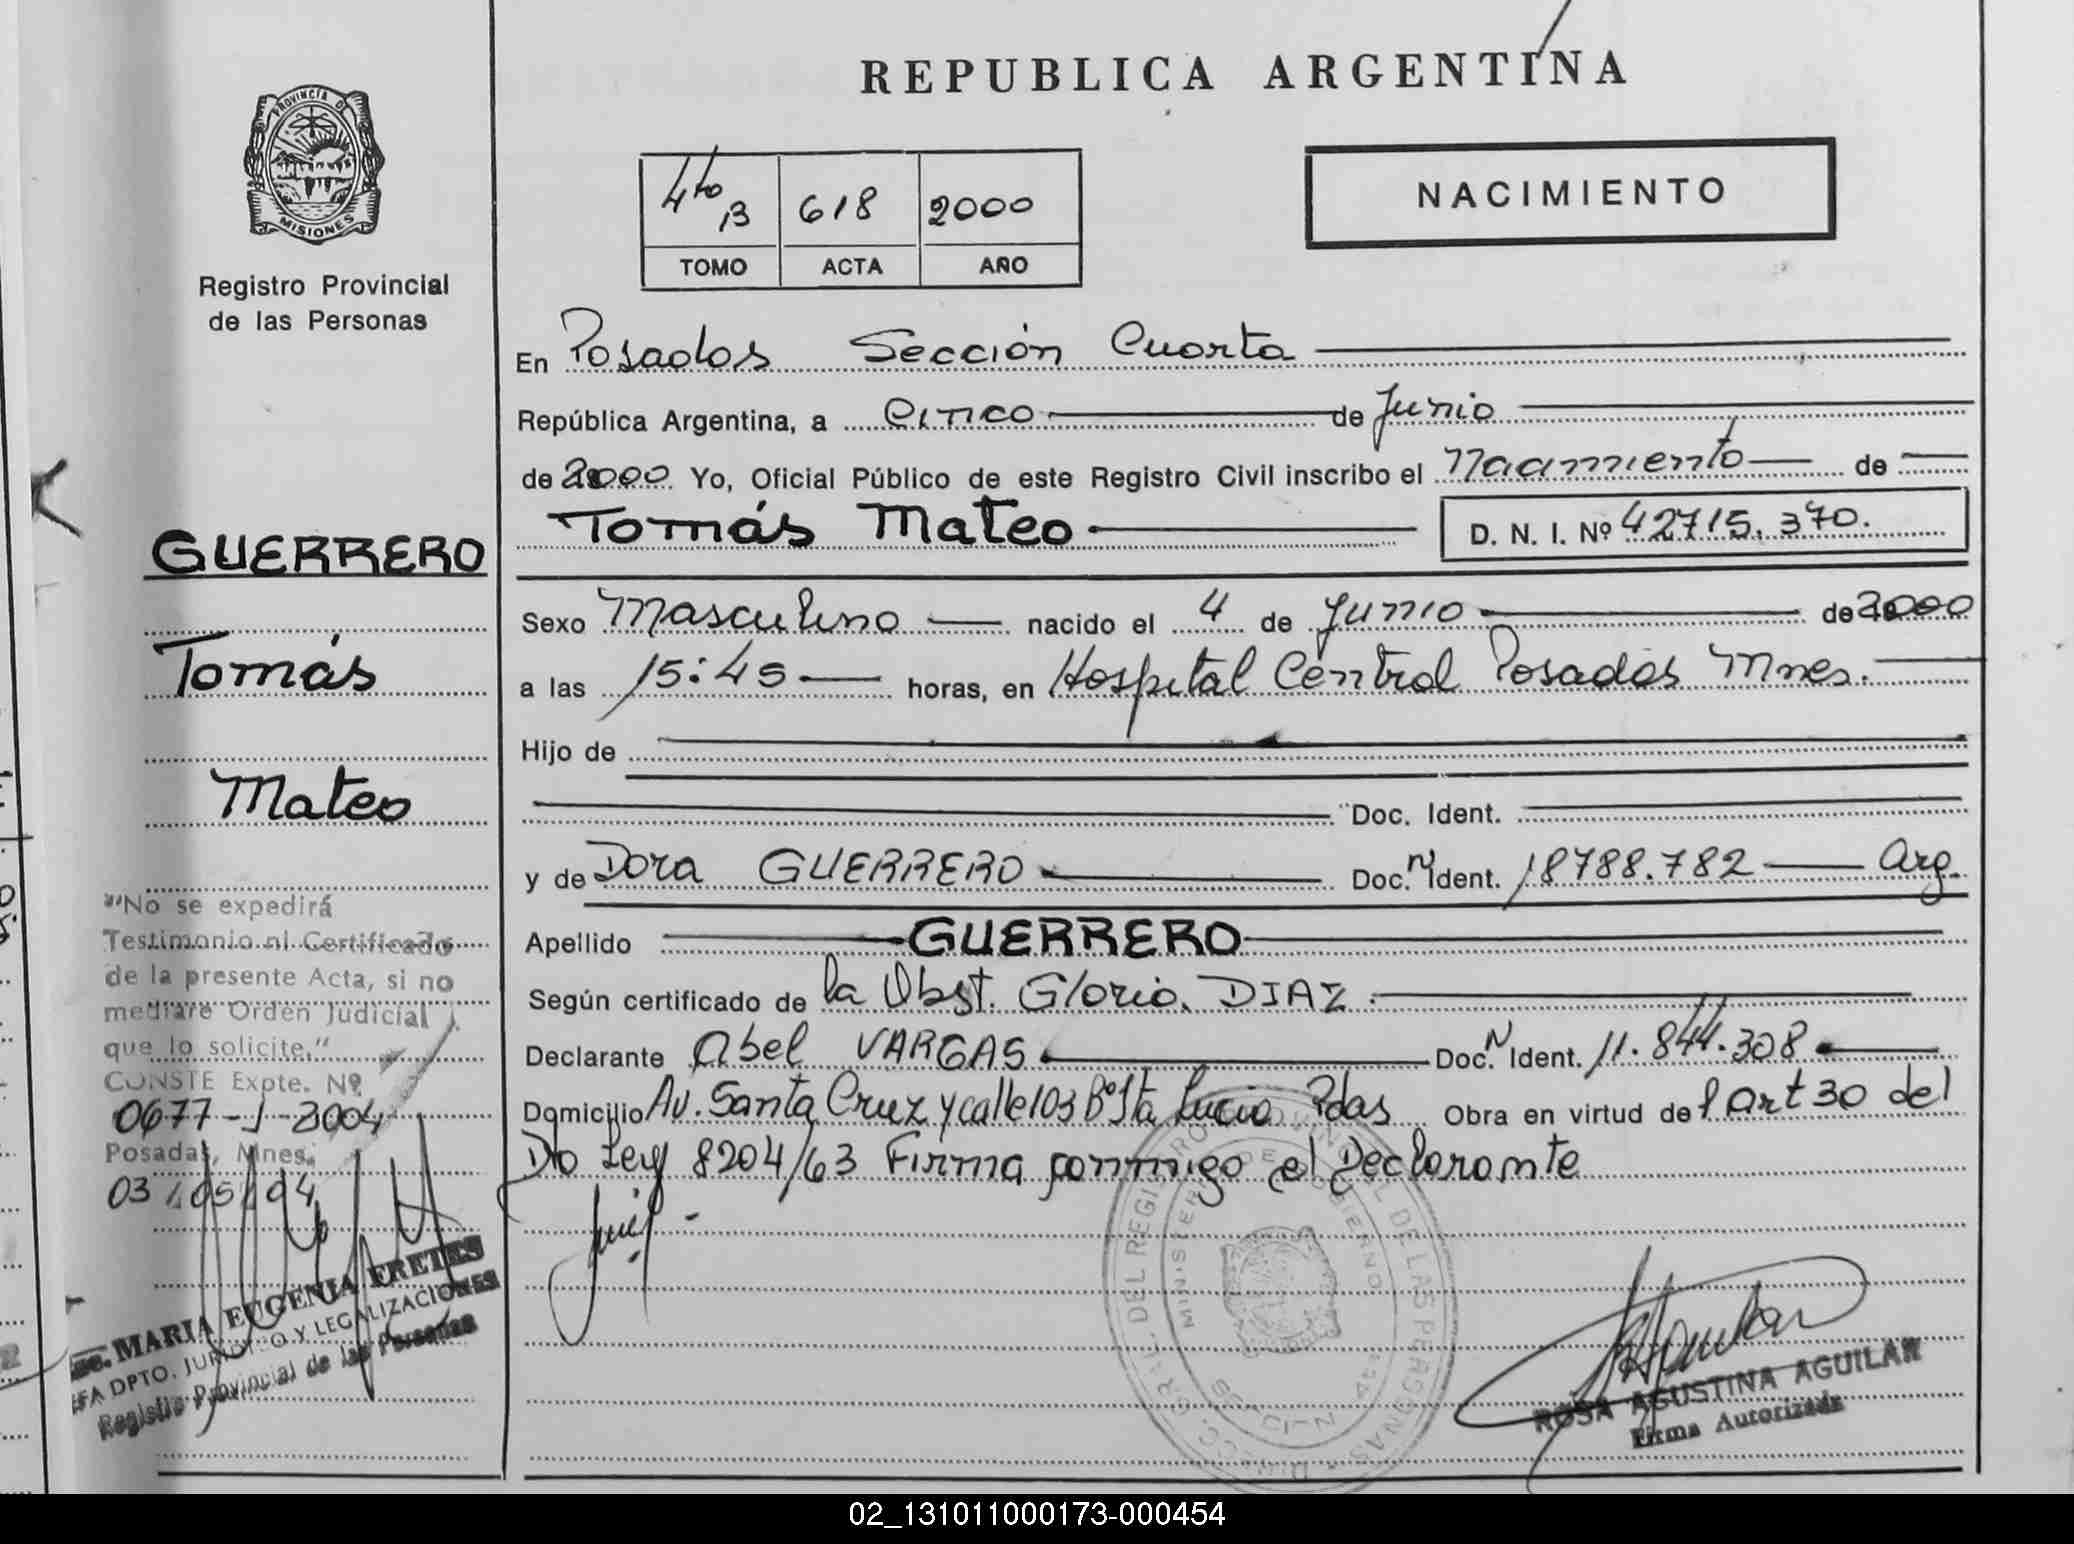 PROVINCIA DE
MISIONES
Registro Provincial
de las Personas
GUERRERO
Tomás
Mateo
"No se expedirá
Testimonio ni Certificado
de la presente Acta, si no
mediare Orden Judicial
que lo solicite."
CONSTE Expte. Nº
0677-J-2004
Posadas, Mnes.
03/05/04
MARIA EUGENIA FRETES
DPTO. JURIDICO Y LEGALIZACIONES
Registro Provincial de las Personas
REPUBLICA ARGENTINA
4to B 618 2000
TOMO ACTA AÑO
NACIMIENTO
En Posadas Sección Cuarta
República Argentina, a cinco de Junio
de 2000 Yo, Oficial Público de este Registro Civil inscribo el Nacimiento de
Tomás Mateo D. N. I. Nº 42715.370.
Sexo Masculino nacido el 4 de Junio de 2000
a las 15:45 horas, en Hospital Central Posadas Mnes.
Hijo de
Doc. Ident.
y de Dora GUERRERO Doc. N Ident. 18788.782 Arg.
Apellido GUERRERO
Según certificado de la Obst. Gloria DIAZ.
Declarante Abel VARGAS Doc. N Ident. 11.844.308
Domicilio Av. Santa Cruz y calle 103 Bº Sta Lucia Pdas Obra en virtud del art 30 del
Dto Ley 8204/63 Firma conmigo el Declarante
ROSA AGUSTINA AGUILAR
Firma Autorizada
02_131011000173-000454